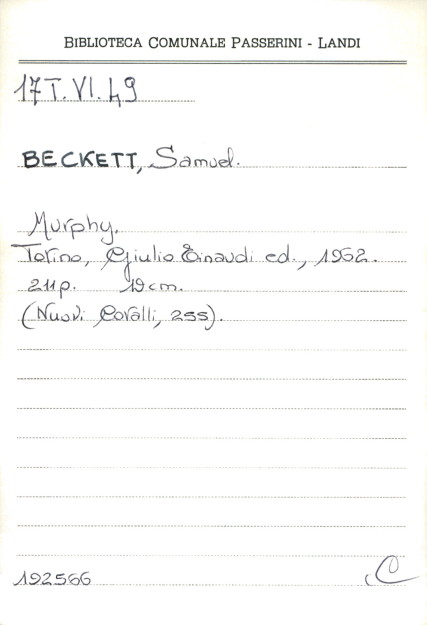 BIBLIOTECA COMUNALE PASSERINI - LANDI
17 T. VI. 49
BECKETT, Samuel.
Murphy.
Torino, Giulio Einaudi ed., 1962.
211p. 19cm.
(Nuovi Coralli, 255).
192566
C